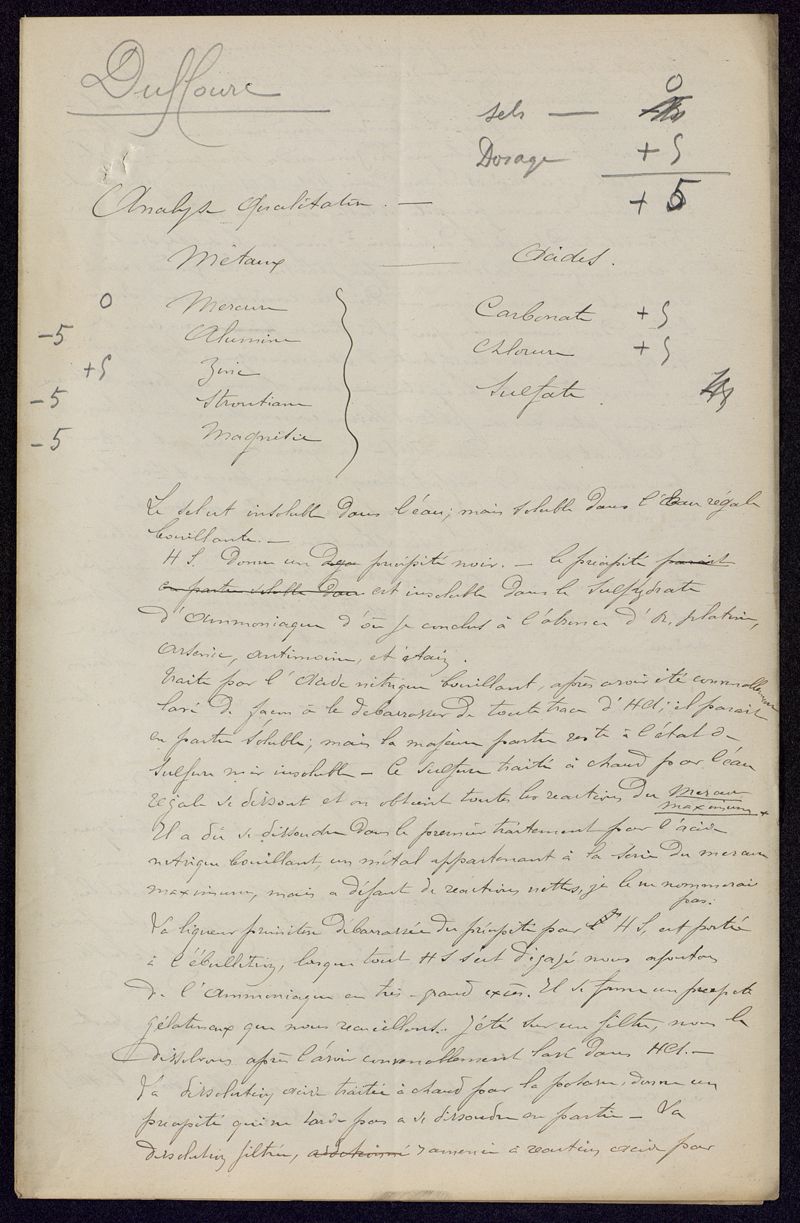 Dufloure
sels — 0
Dosage + 5
+ 5
Analyse Qualitative. —
Métaux — Acides.
0 Mercure
-5 Alumine
+5 Zinc
-5 Strontiane
-5 Magnésie
Carbonate +5
Chlorure +5
Sulfate
Le sel est insoluble dans l'eau; mais soluble dans l'Eau régale
bouillante. —
HS. donne un précipité noir. — le précipité paraît
en partie soluble dans est insoluble dans le sulfhydrate
d'Ammoniaque d'où je conclus à l'absence d'Or, platine,
arsenic, antimoine, et étain.
Traité par l'Acide nitrique bouillant, après avoir été convenablement
lavé de façon à le débarrasser de toute trace d'HCl; il paraît
en partie soluble; mais la majeure partie reste à l'état de
sulfure noir insoluble — Ce sulfure traité à chaud par l'eau
régale se dissout et on obtient toutes les réactions du Mercure
maximum
Il a dû se dissoudre dans le premier traitement par l'acide
nitrique bouillant, un métal appartenant à la série du mercure
maximum, mais a défaut de réactions nettes, je le ne nommerai
pas.
La liqueur primitive débarrassée du précipité par HS, est portée
à l'ébullition, lorsque tout HS est dégagé nous ajoutons
de l'Ammoniaque en très-grand excès. Il se forme un précipité
gélatineux que nous recueillons. Jeté sur un filtre, nous le
dissolvons après l'avoir convenablement lavé dans HCl. —
La dissolution acide traitée à chaud par la potasse, donne un
précipité qui ne tarde pas a se dissoudre en partie — La
dissolution filtrée, ramenée à réaction acide par